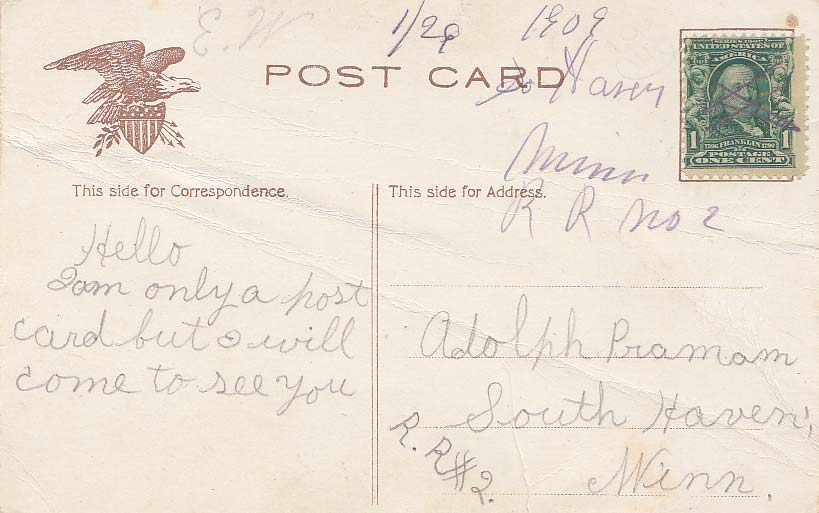 E.W
1/29 1909
POST CARD
So Haven
Minn
R R no 2
SERIES 1902
UNITED STATES OF
AMERICA
1706 FRANKLIN 1790
POSTAGE
1 ONE CENT 1
This side for Correspondence.
This side for Address.
Hello
I am only a post
card but I will
come to see you
Adolph Pramam
South Haven,
Minn.
R. R#2.